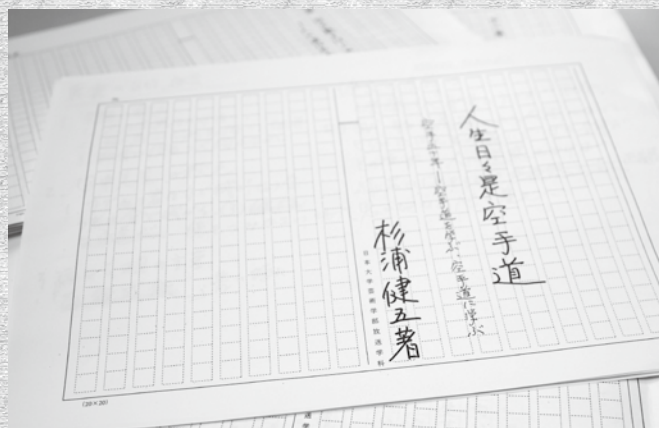 人生日々是空手道
空手五十年ー空手道を学ぶ、空手道に学ぶ
杉浦健五著
日本大学芸術学部放送学科
(20×20)